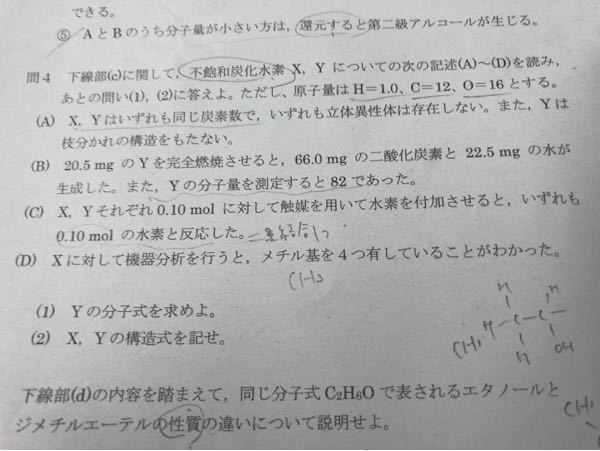 できる。
⑤ AとBのうち分子量が小さい方は,還元すると第二級アルコールが生じる。
問4 下線部(c)に関して,不飽和炭化水素 X,Y についての次の記述(A)～(D)を読み,
あとの問い(1),(2)に答えよ。ただし,原子量は H=1.0, C=12, O=16 とする。
(A) X,Yはいずれも同じ炭素数で,いずれも立体異性体は存在しない。また,Yは
枝分かれの構造をもたない。
(B) 20.5 mg のYを完全燃焼させると,66.0 mg の二酸化炭素と 22.5 mg の水が
生成した。また,Yの分子量を測定すると 82 であった。
(C) X,Yそれぞれ 0.10 mol に対して触媒を用いて水素を付加させると,いずれも
0.10 mol の水素と反応した。二重結合1つ
(D) Xに対して機器分析を行うと,メチル基を4つ有していることがわかった。
CH3
(1) Yの分子式を求めよ。
(2) X,Yの構造式を記せ。
H H
H-C-C-
CH3
H OH
下線部(d)の内容を踏まえて,同じ分子式 C2H6O で表されるエタノールと
ジメチルエーテルの性質の違いについて説明せよ。